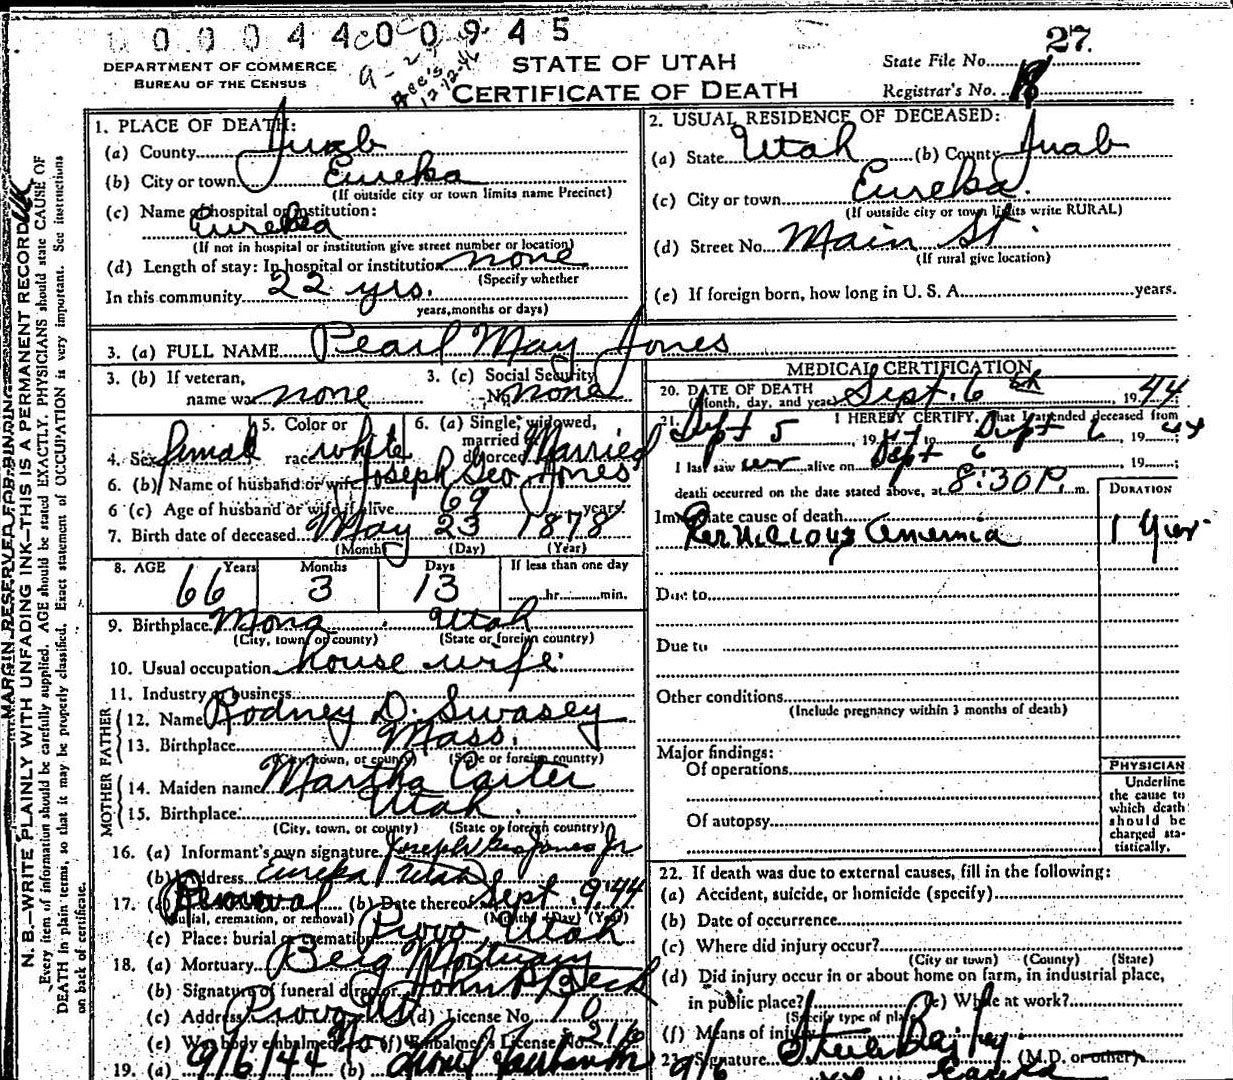 0 0 0 4 4 0 0 9 4 5
27.
DEPARTMENT OF COMMERCE
BUREAU OF THE CENSUS
Rec's
12-12-46
STATE OF UTAH
CERTIFICATE OF DEATH
State File No.
Registrar's No.
MARGIN RESERVED FOR BINDING
N. B.—WRITE PLAINLY WITH UNFADING INK—THIS IS A PERMANENT RECORD
Every item of information should be carefully supplied. AGE should be stated EXACTLY. PHYSICIANS should state CAUSE OF
DEATH in plain terms, so that it may be properly classified. Exact statement of OCCUPATION is very important. See instructions
on back of certificate.
1. PLACE OF DEATH:
(a) County Juab
(b) City or town Eureka
(If outside city or town limits name Precinct)
(c) Name of hospital or institution:
Eureka
(If not in hospital or institution give street number or location)
(d) Length of stay: In hospital or institution none
(Specify whether
In this community 22 yrs.
years, months or days)
2. USUAL RESIDENCE OF DECEASED:
(a) State Utah (b) County Juab
(c) City or town Eureka.
(If outside city or town limits write RURAL)
(d) Street No. Main St.
(If rural give location)
(e) If foreign born, how long in U. S. A. years.
3. (a) FULL NAME Pearl May Jones
3. (b) If veteran,
name war none
3. (c) Social Security
No. none
4. Sex female
5. Color or
race white
6. (a) Single, widowed,
married
divorced Married
6. (b) Name of husband or wife Joseph Geo Jones
6 (c) Age of husband or wife if alive 69 years
7. Birth date of deceased May 23 1878
(Month) (Day) (Year)
8. AGE Years Months Days If less than one day
66 3 13 hr. min.
9. Birthplace Mona Utah
(City, town, or county) (State or foreign country)
10. Usual occupation house wife
11. Industry or business
FATHER
12. Name Rodney D. Swasey
13. Birthplace Mass.
(City, town, or county) (State or foreign country)
MOTHER
14. Maiden name Martha Carter
15. Birthplace Utah
(City, town, or county) (State or foreign country)
16. (a) Informant's own signature Joseph Geo Jones Jr
(b) Address Eureka Utah
17. (a) Removal (b) Date thereof Sept 9, 44
(Burial, cremation, or removal) (Month) (Day) (Year)
(c) Place: burial or cremation Provo Utah
18. (a) Mortuary Berg Mortuary
(b) Signature of funeral director John P Beck
(c) Address Provo Ut (d) License No. 70
(e) Was body embalmed? (f) Embalmer's License No. 216
19. (a) 9/6/44 (b)
MEDICAL CERTIFICATION
20. DATE OF DEATH
(Month, day, and year) Sept. 6 th, 1944
21. I HEREBY CERTIFY, That I attended deceased from
Sept 5, 1944 to Sept 6 19 44
I last saw her alive on Sept 6, 19
death occurred on the date stated above, at 8:30 P. m.
DURATION
Immediate cause of death
Pernicious Anemia 1 year
Due to
Due to
Other conditions
(Include pregnancy within 3 months of death)
Major findings:
Of operations
Of autopsy
PHYSICIAN
Underline
the cause to
which death
should be
charged sta-
tistically.
22. If death was due to external causes, fill in the following:
(a) Accident, suicide, or homicide (specify)
(b) Date of occurrence
(c) Where did injury occur?
(City or town) (County) (State)
(d) Did injury occur in or about home on farm, in industrial place,
in public place? (e) While at work?
(Specify type of place)
(f) Means of injury
23. Signature Steele Bailey (M.D. or other)
9/6 Eureka